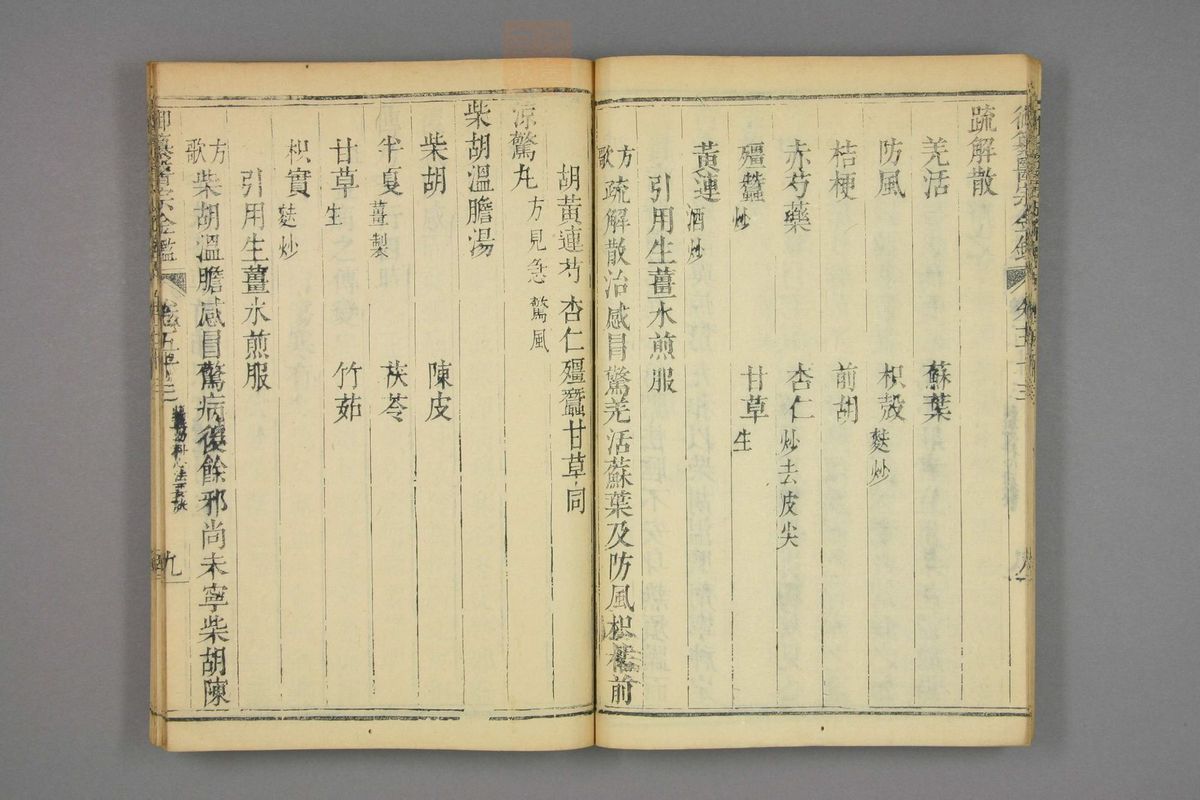 疏解散
羌活　蘇葉
防風　枳殼麩炒
桔梗　前胡
赤芍藥　杏仁炒去皮尖
殭蠶炒　甘草生
黃連酒炒
引用生薑水煎服
方歌　疏解散治感冒驚羌活蘇葉及防風枳桔前
胡黃連芍杏仁殭蠶甘草同
涼驚丸方見急驚風
柴胡溫膽湯
柴胡　陳皮
半夏薑製　茯苓
甘草生　竹茹
枳實麩炒
引用生薑水煎服
方歌　柴胡溫膽感冒驚病後餘邪尚未寧柴胡陳
御纂醫宗金鑑　卷五十三　幼科心法要訣　九